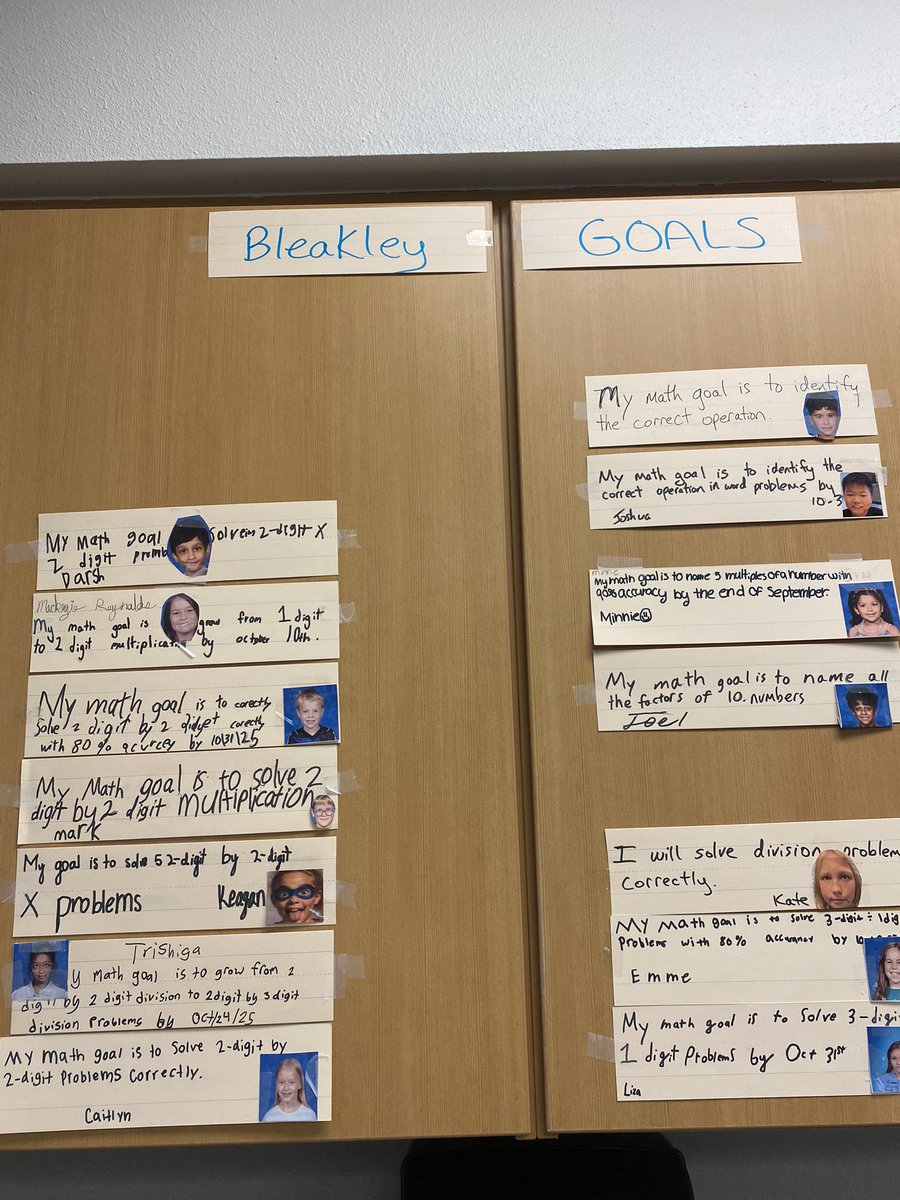 Bleakley
GOALS
My math goal Solveing 2-digit X
2 digit
Darsh
Mackenzie Reynolds
My math goal is grow from 1 digit
to 2 digit multiplication by october 10th.
My math goal is to corectly
Solve 2 digit by 2 didget corectly
with 80% acurcey by 10/31/25
My Math goal is to solve 2
digit by 2 digit multiplication
mark
My goal is to solve 5 2-digit by 2-digit
X problems Keagan
Trishiga
y math goal is to grow from 2
digit by 2 digit division to 2digit by 3digit
division Problems by Oct/24/25
My math goal is to solve 2-digit by
2-digit Problems correctly.
Caitlyn
My math goal is to identify
the correct operation.
My math goal is to identify the
correct operation in word problems by
10-3
Joshua
minnie
my math goal is to name 5 multiples of a number with
90% accuracy by the end of September.
Minnie
My math goal is to name all
the factors of 10 numbers
Joel
I will solve division problem
Correctly.
Kate
My Math goal is to solve 3-digit ÷ 1dig
Problems with 80% accuracy by
Emme
My math goal is to solve 3-digi
1 digit Problems by Oct 31st
Liza